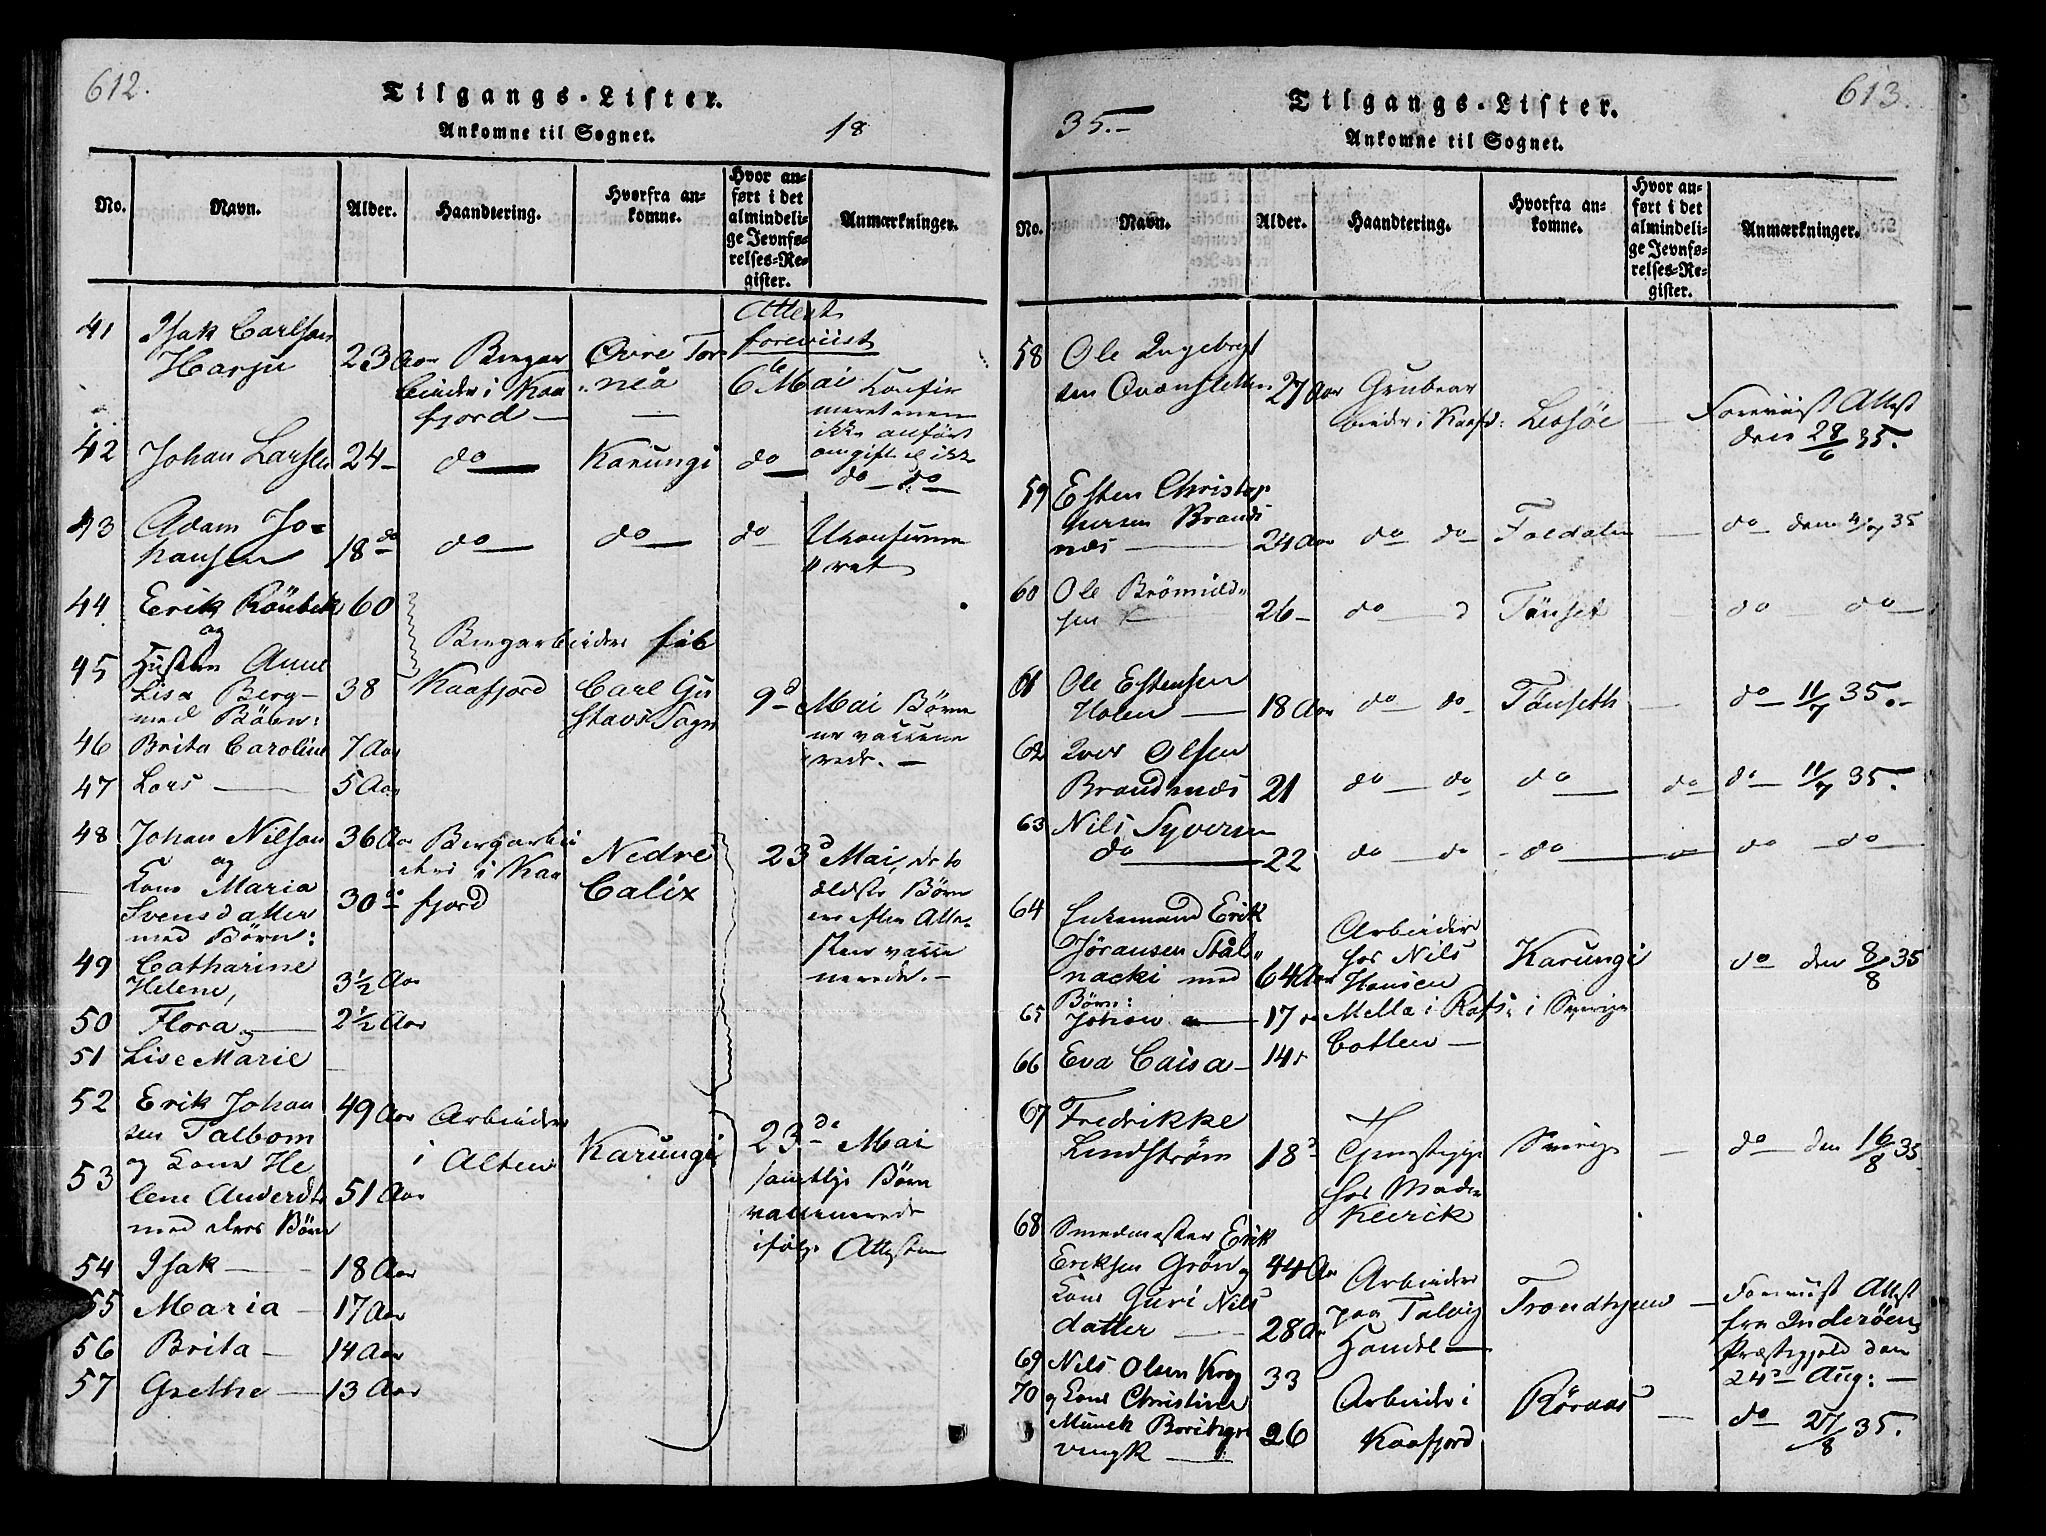 612.
Tilgangs-Lister.
Ankomne til Sognet.
18
No.
Navn.
Alder.
Haandtering.
Hvorfra an-
komne.
Hvor an-
ført i det
almindeli-
ge Jevnfø-
relses-Re-
gister.
Anmærkninger.
41 Isak Carlsen
Harju 23 Aar
Bergar
beider i Kaa
fjord —
Øvre Tor
neå
Attest
foreviist
6te Mai
42 Johan Larsen 24 — do — Karungi do —
ikke anført
do — do —
43 Adam Jo-
hansen 18 do do — do — do
Ukonfirme
ret
44 Erik Röubek 60
og
Bergarbeider
45 Hustru Anne
Lisa Berg — 38
med Börn:
Kaafjord
Carl Gu
stavs Sogn
9d Mai Börne
ne vaccine
rede. —
46 Brita Caroline 7 Aar
47 Lars — 5 Aar
48 Johan Nilsen 36 Aar
og
Kone Maria
Svensdatter 30 do
med Börn:
Bergarbei
der i Kaa
fjord
Nedre
Calix
23d Mai, de to
ældste Börn
ere efter Atte-
sten vacci
nerede. —
49 Catharine
Helene, 3 1/2 Aar
50 Flora og — 2 1/2 Aar
51 Lise Marie
52 Erik Johan
sen Talbom 49 Aar
Arbeider
i Alten
Karungi
23de Mai
samtlige Börn
vaccinerede
ifölge Attesten
53 og Kone He
lene Andersdtr 51 Aar
med deres Börn
54 Isak — 18 Aar
55 Maria — 17 Aar
56 Brita — 14 Aar
57 Grethe — 13 Aar
613.
Tilgangs-Lister.
35.—
Ankomne til Sognet.
No.
Navn.
Alder.
Haandtering.
Hvorfra an-
komne.
Hvor an-
ført i det
almindeli-
ge Jevnfø-
relses-Re-
gister.
Anmærkninger.
58 Ole Ingebrigt
sen 27 Aar
Grubear
beider i Kaafd: Lessöe —
Foreviist Attest
den 28/6 35.
59 Esten Christop
hersen Brands
næs — 24 Aar do do Foldalen — do den 35
60 Ole Brömild
sen 26 — do — d Tönset — do do —
61 Ole Estensen
Holen — 18 Aar do — do — Tönseth — do — 11/7 35.—
62 Iver Olsen
Brandsnæs 21 do — do do — do — do — 11/7 35.
63 Nils Syversen
do — 22 do — do — do — do — do —
64 Enkemand Erik
Jöransen Stål
nacki med 64 Aar
Börn:
Arbeider
hos Nils
Hansen
Karungi
do den 8/8 35
65 Johan — 17
Mella i Rafs i Sverige
66 Eva Caisa — 14
Botten —
67 Fredrikke
Lindström 18
Tjenestepige
hos Madm
Keirik
Sverige — do — den 16/8 35
68 Smedmester Erik
Eriksen Grön og 44 Aar
Kone Guri Nils
datter — 28 Aar
Arbeider
paa Talvig
Handel —
Trondhjem —
Foreviist Attest
fra Inderöens
Præstegjeld den
24de Aug: —
69 Nils Olsen Krog 33
70 og Kone Christine
Munck 26
Arbeider i
Kaafjord
Röraas —
do 27/8 35.